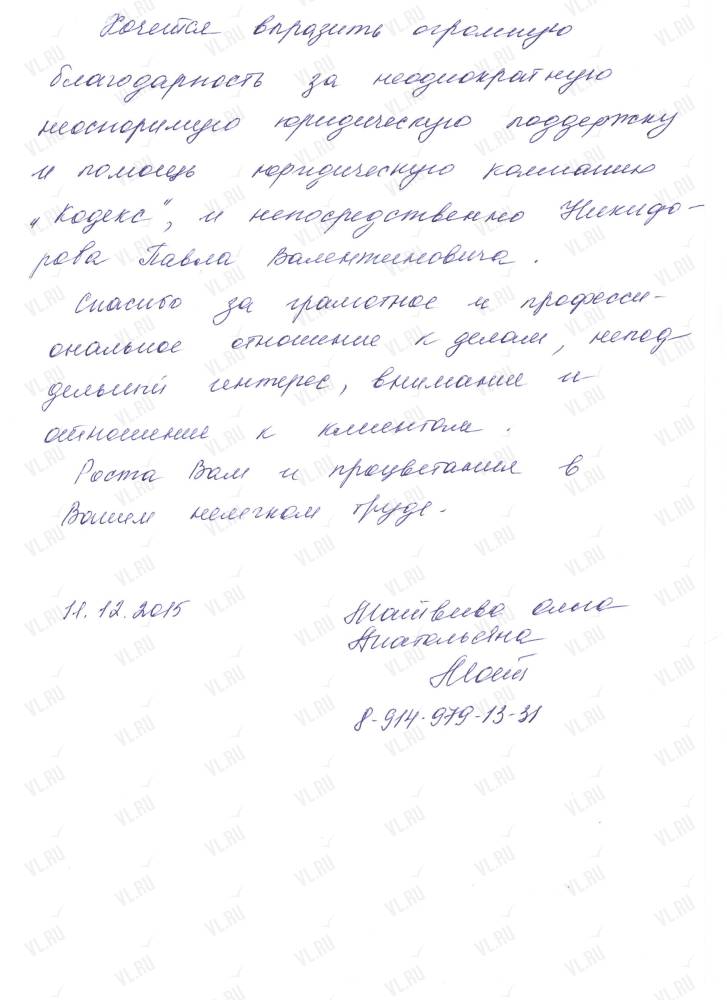 Хочется выразить огромную
благодарность за неоднократную
неоспоримую юридическую поддержку
и помощь юридическую компанию
„Кодекс", и непосредственно Никифо-
рова Павла Валентиновича.
Спасибо за грамотное и професси-
ональное отношение к делам, непод-
дельный интерес, внимание и
отношение к клиентам.
Роста Вам и процветания в
Вашем нелегком труде.
11.12.2015 Матвеева Ольга
Анатольевна
Мат
8-914-979-13-31